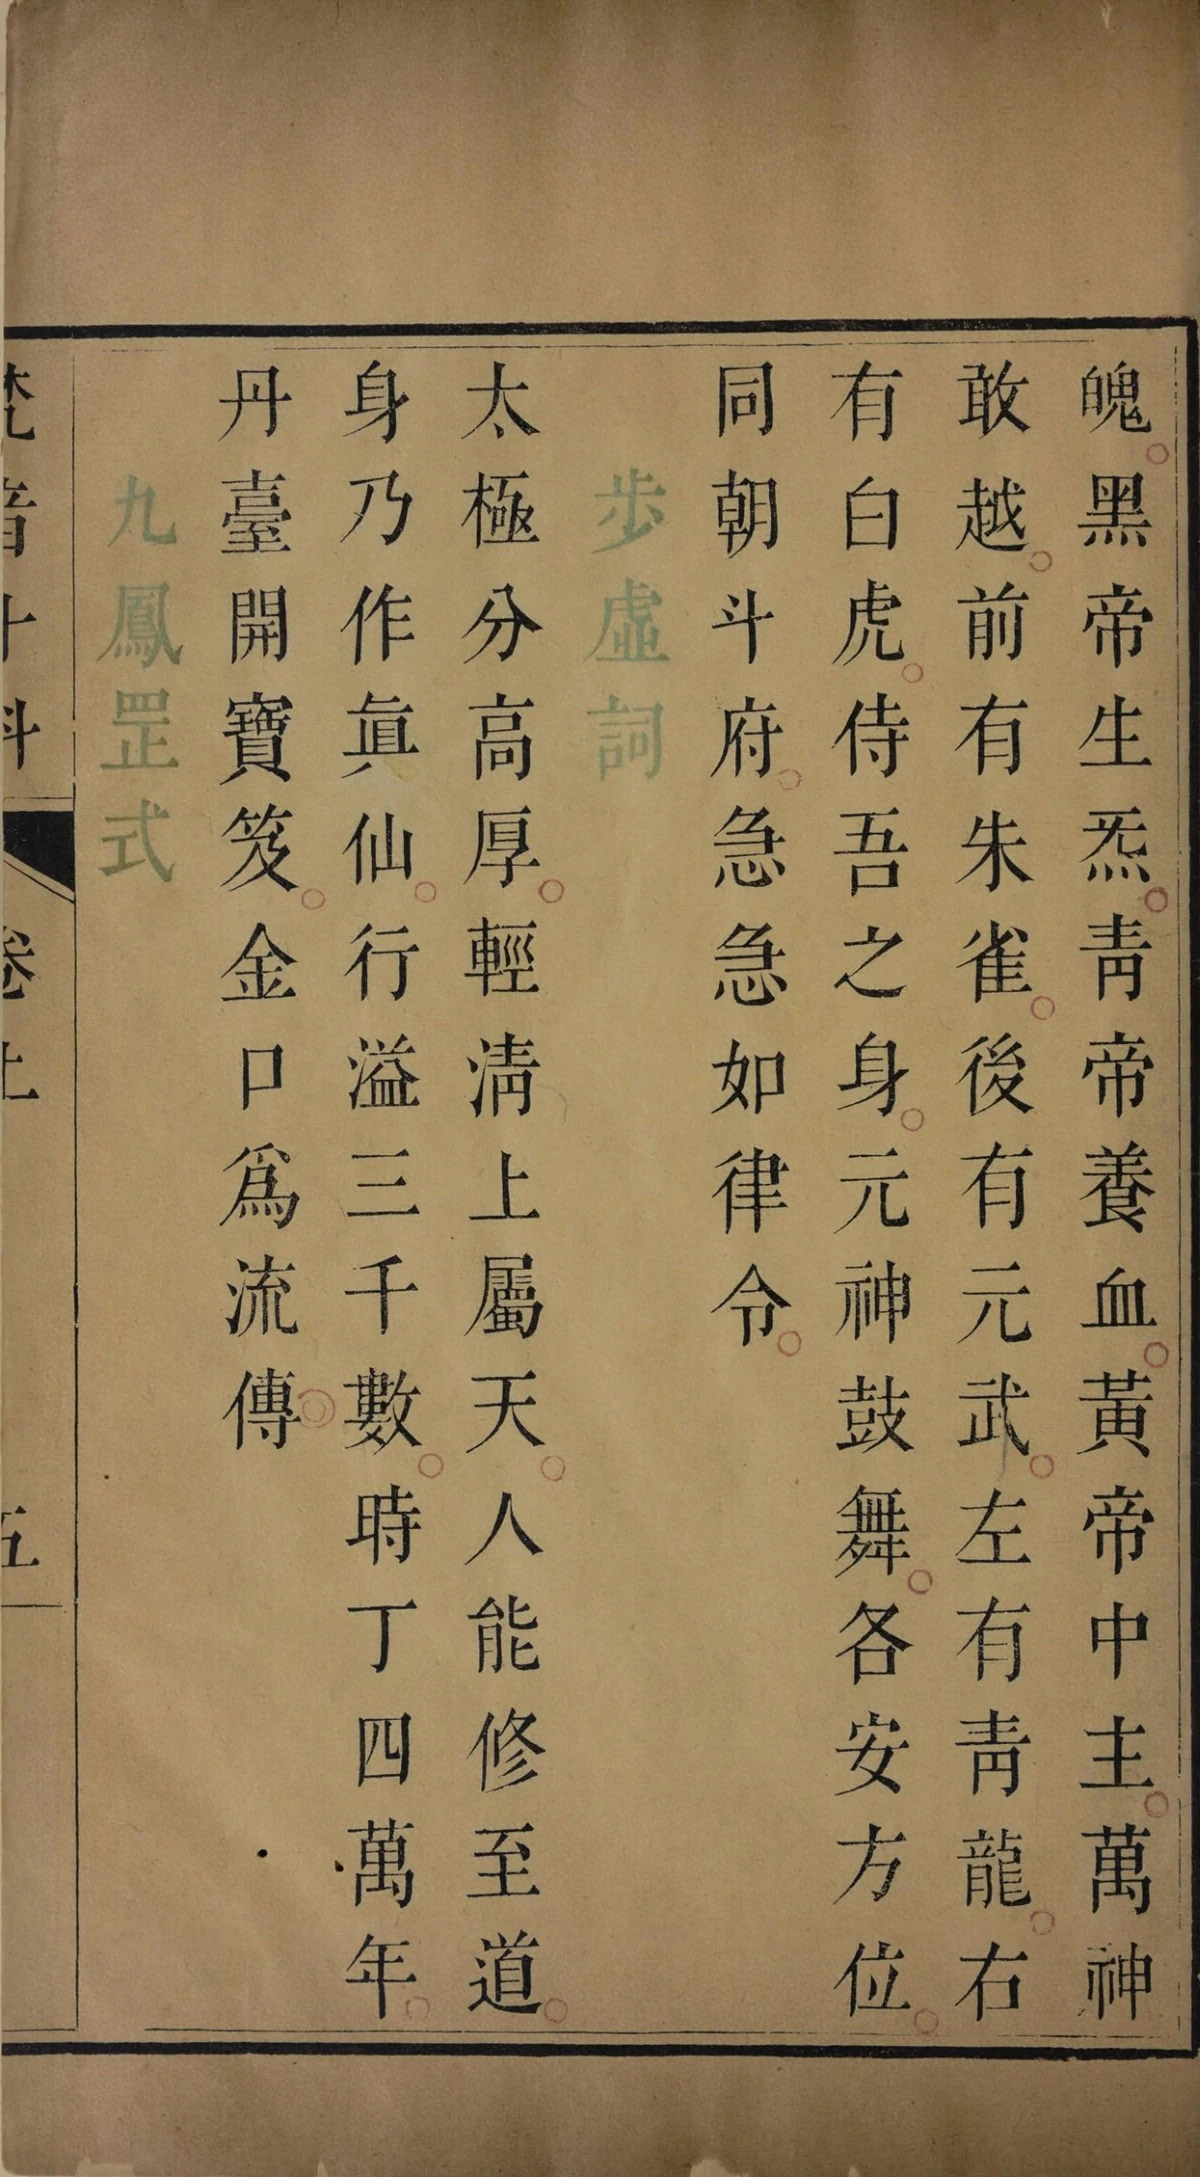 魄。黑帝生炁。靑帝養血。黃帝中主。萬神
敢越。前有朱雀。後有元武。左有靑龍。右
有白虎。侍吾之身。元神鼓舞。各安方位。
同朝斗府。急急如律令。
步虛詞
太極分高厚。輕淸上屬天。人能修至道。
身乃作眞仙。行溢三千數。時丁四萬年。
丹臺開寶笈。金口爲流傳。
九鳳罡式
梵音斗科
卷上
五